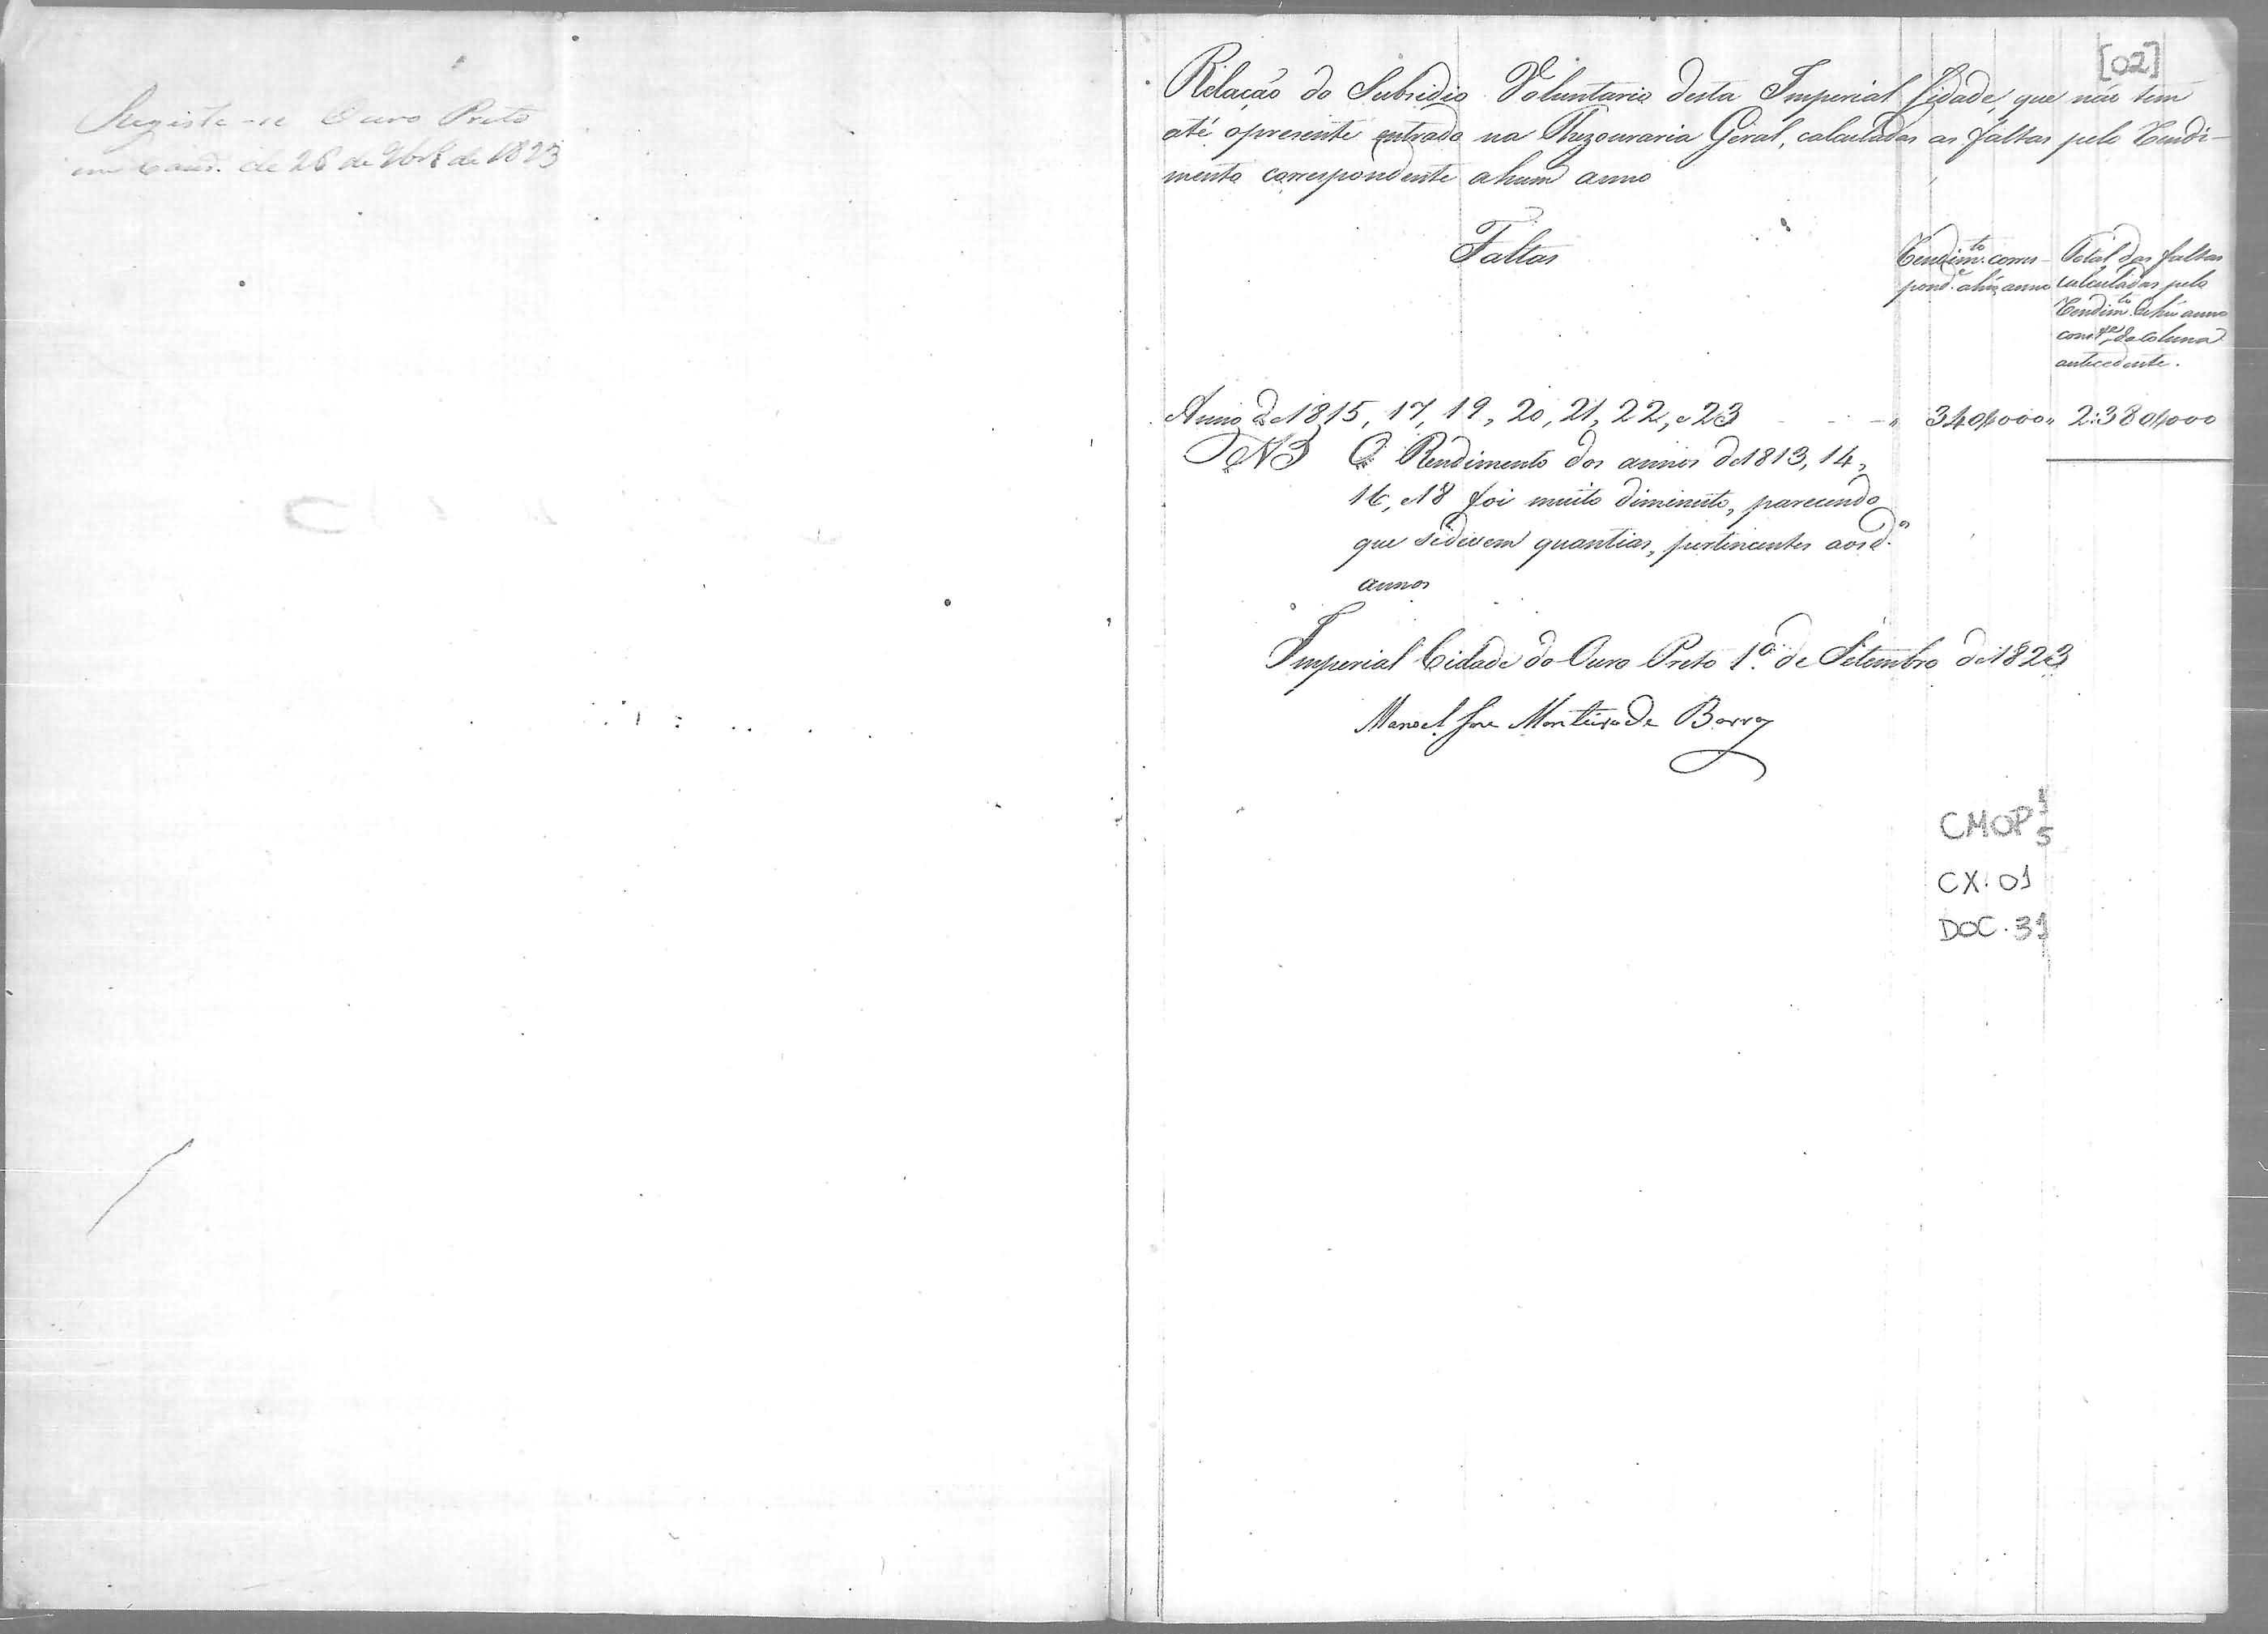 Registe-se Ouro Preto
em de 26 de 9br.º de 1823
[02]
Relação do Subsidio Voluntario desta Imperial Cidade, que não tem
até opresente entrado na Thezouraria Geral, calculadas as faltas pelo Rendi-
mento correspondente ahum anno
Faltas
Rendim.to corres-
pond.e ahũ anno
Total das faltas
calculadas pelo
Rendim.to dehũ anno
da Coluna
antecedente.
Anno de 1815, 17, 19, 20, 21, 22, e 23 - - - " 340$000 " 2:380$000
NB O Rendimento dos annos de 1813, 14,
16, e 18 foi muito diminuto, parecendo
que sedevem quantias, pertincentes aosd.os
annos
Imperial Cidade do Ouro Preto 1º de Setembro de 1823
Manoel Jose Monteiro de Barros
CMOP 1
5
CX. 01
DOC. 31